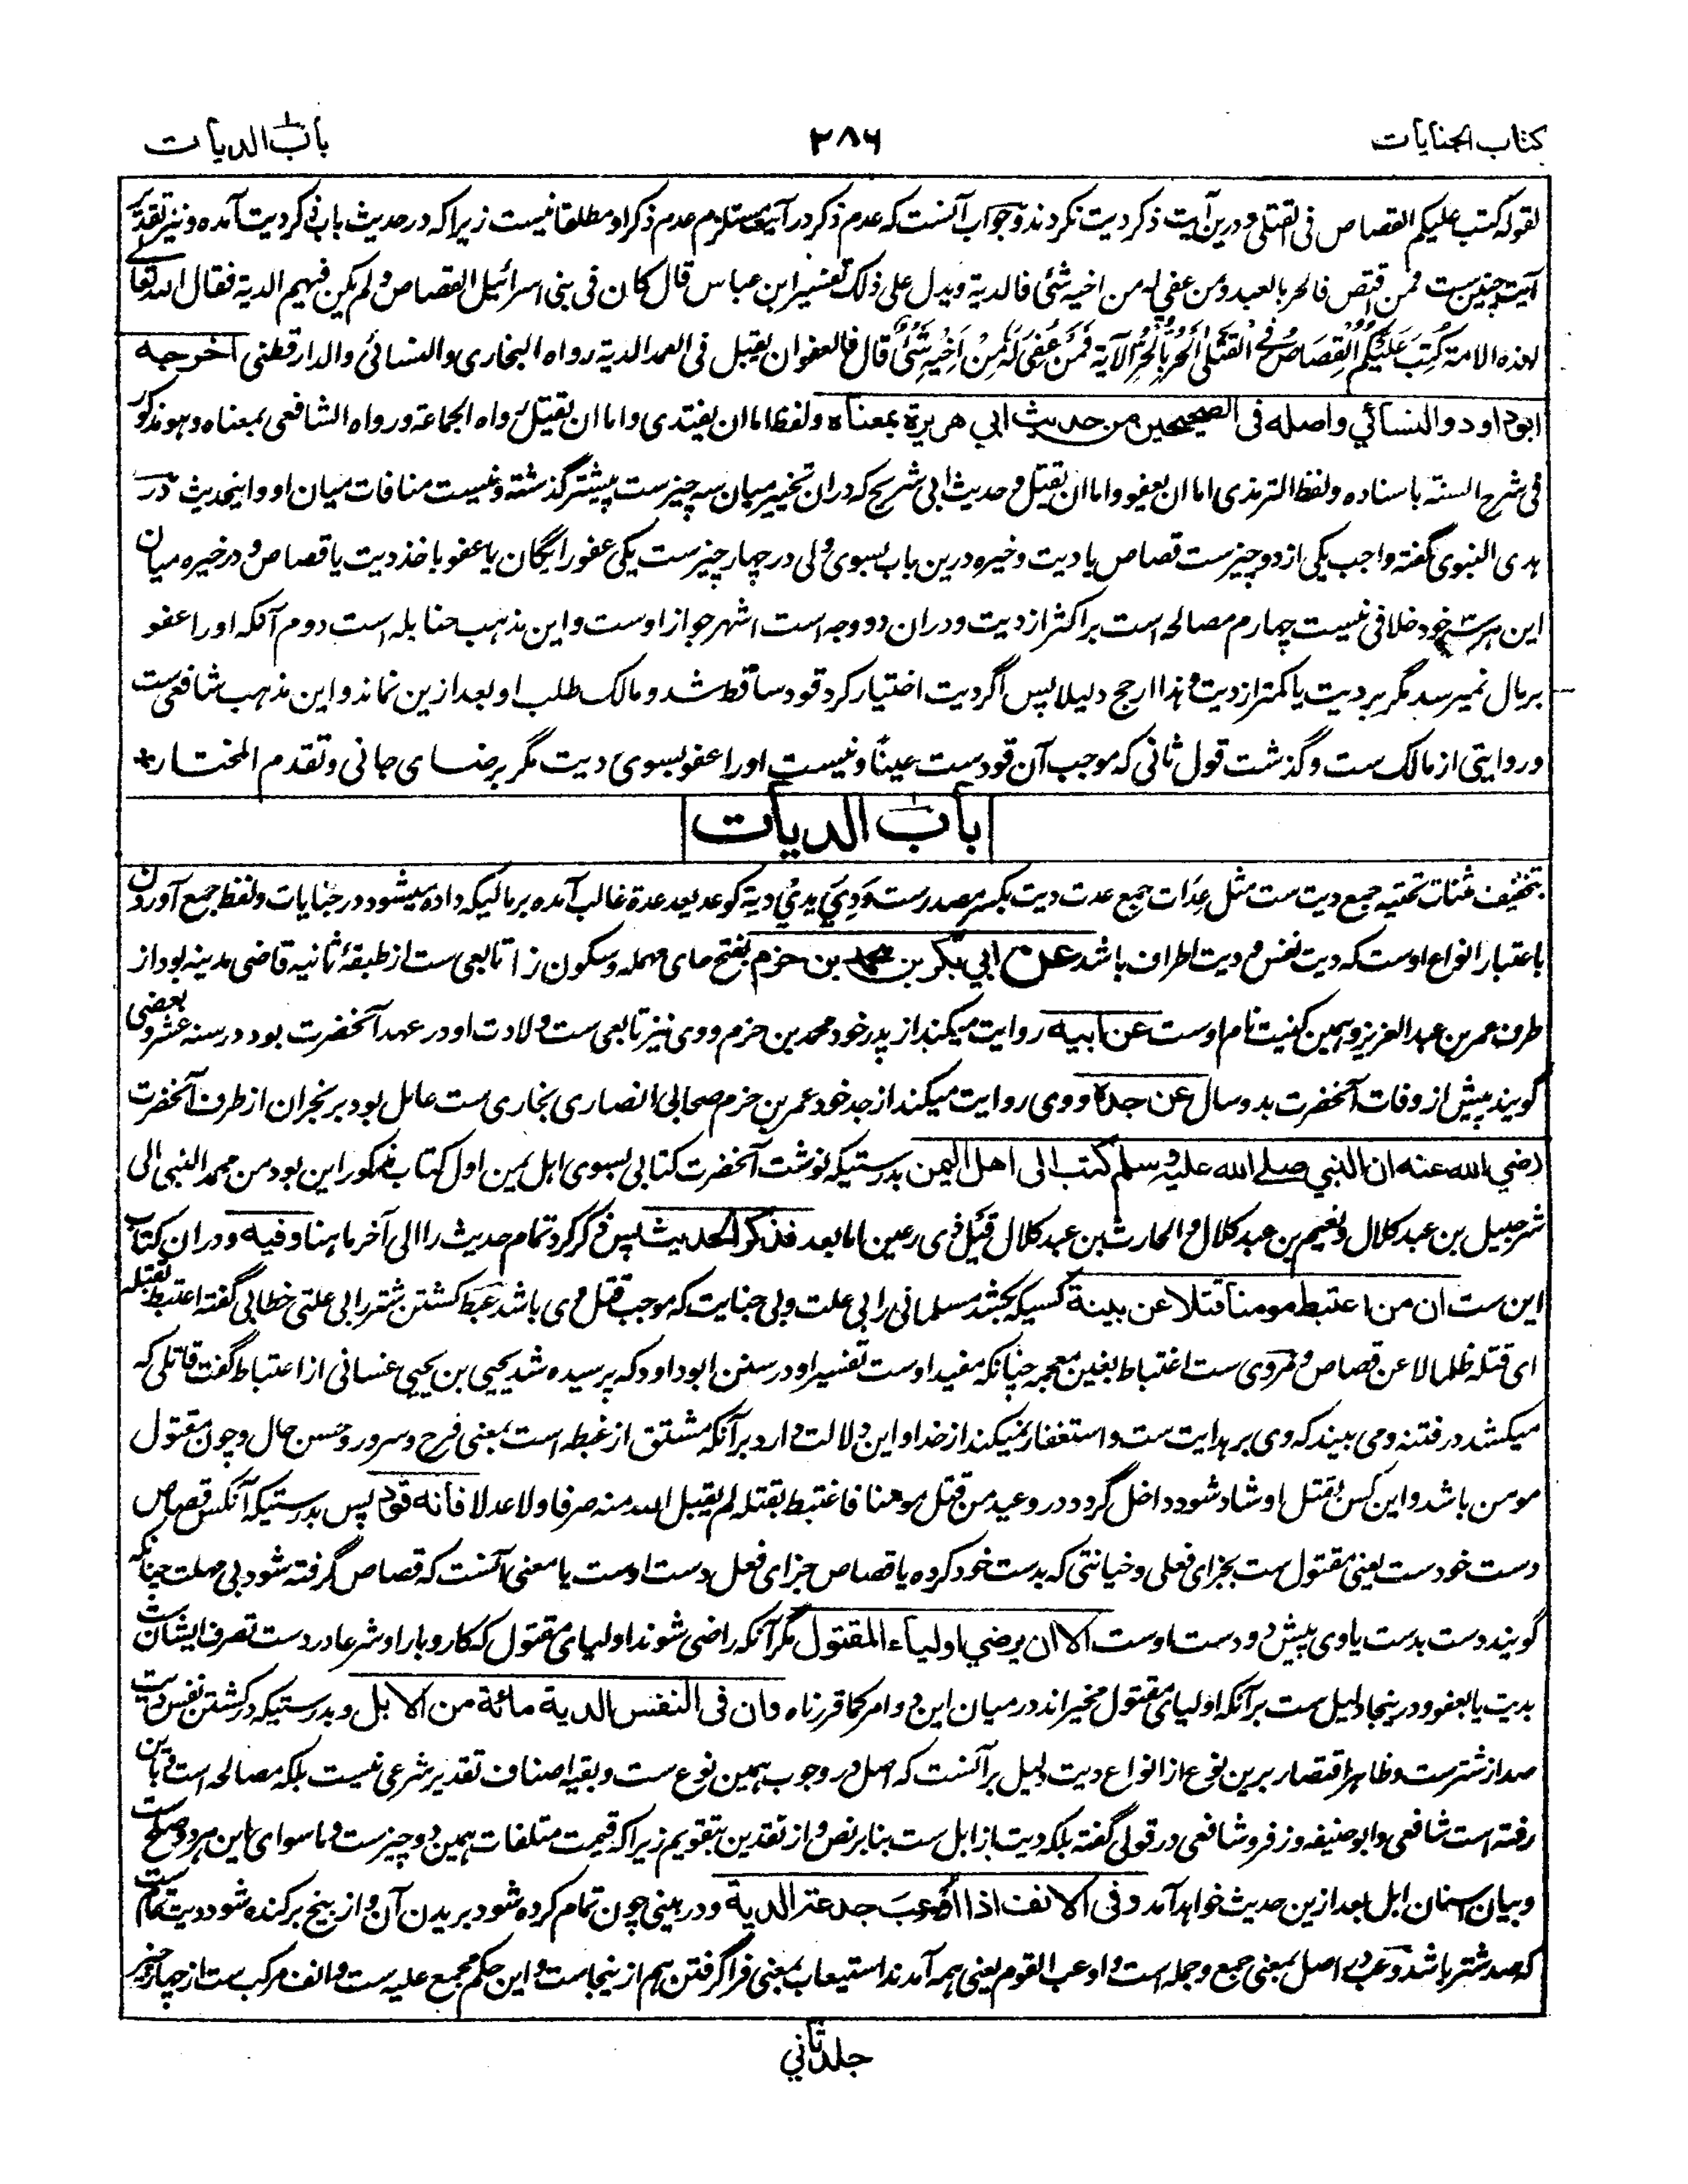 کتاب الجنایات ۳۸۶ باب الدیات
لقوله کتب علیکم القصاص فی القتلی و درین آیت ذکر دیت نکردند و جواب آنست که عدم ذکر در آیت مستلزم عدم ذکر او مطلقا نیست زیرا که در حدیث باب ذکر دیت آمده و نیز تقدیر
آیت چنین ست فمن اقتص فالحر بالعبد ومن عفی له من اخیه شئ فالدیة ویدل علی ذلک تفسیر ابن عباس قال کان فی بنی اسرائیل القصاص ولم یکن فیهم الدیة فقال الله تعالے
لهذه الامة کُتِبَ عَلَیْکُمُ الْقِصَاصُ فِی الْقَتْلٰی اَلْحُرُّ بِالْحُرِّ الآیة فَمَنْ عُفِیَ لَهٗ مِنْ اَخِیْهِ شَیْئٌ قال فالعفو ان یقبل فی العمد الدیة رواه البخاری والنسائی والدارقطنی اخرجه
ابوداود والنسائي واصله فی الصحیحین من حدیث ابي هریرة بمعناه ولفظ اما ان یفتدی واما ان یقتل رواه الجماعة ورواه الشافعی بمعناه وهو مذکور
فی شرح السنة باسناده ولفظ الترمذی اما ان یعفو واما ان یقتل و حدیث ابی شریح که دران تخییر میان سه چیز ست پیشتر گذشته و نیست منافات میان او و اینحدیث در
هدی النبوی گفته واجب یکی از دو چیز ست قصاص یا دیت و خیره درین باب بسوی ولی در چهار چیز ست یکی عفو رایگان یا عفو باخذ دیت یا قصاص و در خیره میان
این هر سه خود خلافی نیست چهارم مصالحه است بر اکثر از دیت و دران دو وجه است اشهر جواز اوست و این مذهب حنابله است دوم آنکه او را عفو
بر مال نمیرسد مگر بر دیت یا کمتر از دیت و هذا ارجح دلیلا پس اگر دیت اختیار کرد قود ساقط شد و مالک طلب او بعد ازین نماند و این مذهب شافعی ست
و روایتی از مالک ست و گذشت قول ثانی که موجب آن قود ست عینا و نیست او را عفو بسوی دیت مگر برضای جانی و تقدم المختار
باب الدیات
بتخفیف مثنات تحتیه جمع دیت ست مثل عِدَات جمع عدت دیت بکسر مصدر ست وَدِیَ یدی دیة کوعد یعد عدة غالب آمده بر مالیکه داده میشود در جنایات و لفظ جمع آوردن
باعتبار انواع اوست که دیت نفس و دیت اطراف باشد عن ابي بکر بن محمد بن حزم بفتح حای مهمله و سکون زا تابعی ست از طبقهٔ ثانیه قاضی مدینه بود از
طرف عمر بن عبد العزیز و همین کنیت نام اوست عن ابیه روایت میکند از پدر خود محمد بن حزم و وی نیز تابعی ست ولادت او در عهد آنحضرت بود در سنه عشر و بعضی
گویند پیش از وفات آنحضرت بدو سال عن جده و وی روایت میکند از جد خود عمر بن حزم صحابی انصاری بخاری ست عامل بود بر نجران از طرف آنحضرت
رضي الله عنه ان النبي صلے الله علیه وسلم کتب الی اهل الیمن بدرستیکه نوشت آنحضرت کتابی بسوی اهل یمن اول کتاب مذکور این بود من محمد النبی الی
شرحبیل بن عبد کلال ونعیم بن عبد کلال والحارث بن عبد کلال قَیْل ذی رعین اما بعد فذکر الحدیث پس ذکر کرد تمام حدیث را الی آخر ما هنا وفیه و دران کتاب
این ست ان من اعتبط مومنا قتلا عن بینة کسیکه بکشد مسلمانی را بی علت و بی جنایت که موجب قتل وی باشد عبط کشتن شتر را بی علتی خطابی گفته اعتبط بقتله
ای قتله ظلما لا عن قصاص و مروی ست اغتباط بغین معجمه چنانکه مفید اوست تفسیر او در سنن ابوداود که پرسیده شد یحیی بن یحیی غسانی از اعتباط گفت قاتلی که
میکشد در فتنه و می بیند که وی بر هدایت ست و استغفار نمیکند از خدا و این دلالت دارد بر آنکه مشتق از غبطه است بمعنی فرح و سرور و حسن حال و چون مقتول
مومن باشد و این کس بقتل او شاد شود داخل گردد در وعید من قتل مومنا فاغتبط بقتله لم یقبل الله منه صرفا ولا عدلا فانه قود پس بدرستیکه آنکس قصاص
دست خود ست یعنی مقتول ست بجزای فعلی و خیانتی که بدست خود کرده یا قصاص جزای فعل دست اوست یا معنی آنست که قصاص گرفته شود بی مهلت چنانکه
گویند دست بدست یا وی پیش دو دست اوست الا ان یرضي اولیاء المقتول مگر آنکه راضی شوند اولیای مقتول که کار و بار او شرعا در دست تصرف ایشان ست
بدیت یا بعفو و درینجا دلیل ست بر آنکه اولیای مقتول مخیر اند در میان این دو امر کما قررناه وان فی النفس الدیة مائة من الابل و بدرستیکه در کشتن نفس دیت
صد از شتر ست و ظاهر اقتصار برین نوع از انواع دیت دلیل بر آنست که اصل در وجوب همین نوع ست و بقیه اصناف تقدیر شرعی نیست بلکه مصالحه است و باین
رفته است شافعی و ابوحنیفه و زفر و شافعی در قولی گفته بلکه دیت از ابل ست بنا بر نص و از نقدین بتقویم زیرا که قیمت متلفات همین دو چیز ست و ماسوای این هر دو صلح ست
و بیان اسنان ابل بعد ازین حدیث خواهد آمد وفی الانف اذا اُوعِبَ جدعه الدیة و در بینی چون تمام کرده شود بریدن آن و از بیخ برکنده شود دیت تمام ست
که صد شتر باشد وعب در اصل بمعنی جمع و جمله است و اوعب القوم یعنی همه آمدند استیعاب بمعنی فرا گرفتن هم ازینجاست و این حکم مجمع علیه ست و انف مرکب ست از چهار چیز
جلد ثاني